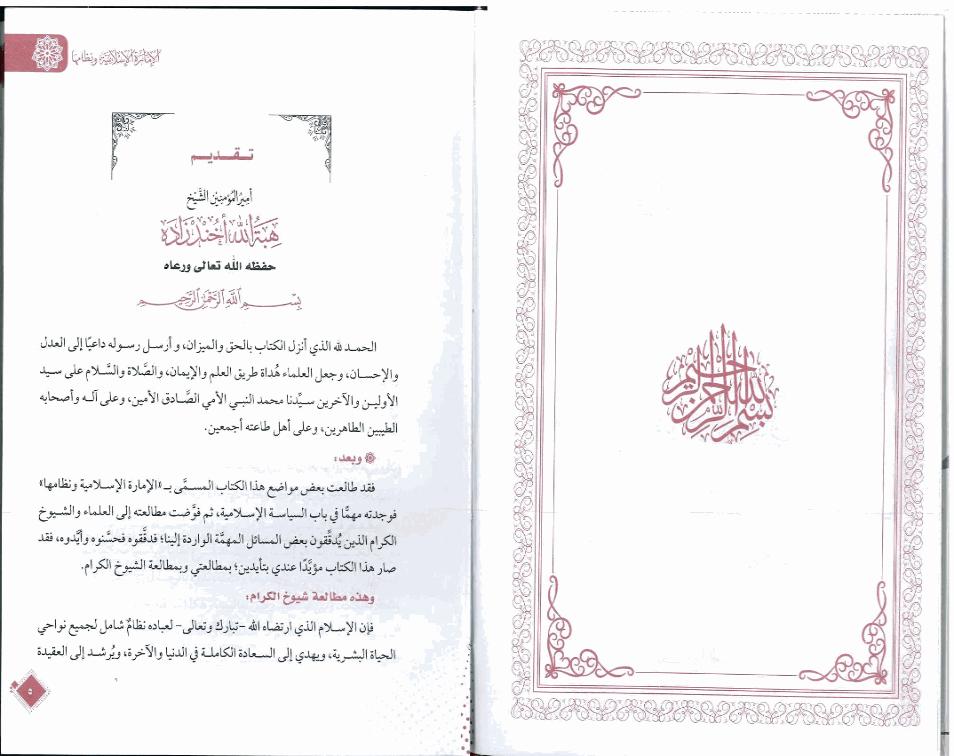 بسم الله الرحمن الرحيم
الإمارة الإسلامية ونظامها
تـقـديـم
أميرُ المُؤمنِين الشَّيخ
هِبَةُ اللهِ أخُنْدزَادَه
حفظه الله تعالى ورعاه
بِسْمِ اللَّهِ الرَّحْمَنِ الرَّحِيمِ
الحمـد لله الذي أنزل الكتاب بالحق والميزان، وأرسـل رسـوله داعيًا إلى العدل
والإحسـان، وجعل العلماء هُداة طريق العلم والإيمان، والصَّلاة والسَّلام على سـيد
الأوليـن والآخرين سـيِّدنا محمد النبـي الأمي الصَّـادق الأمين، وعلى آلـه وأصحابه
الطيبين الطاهرين، وعلى أهل طاعته أجمعين.
وبعد:
فقد طالعت بعض مواضع هذا الكتاب المسـمَّى بـ «الإمارة الإسـلامية ونظامها»
فوجدته مهمًّا في باب السياسـة الإسـلامية، ثم فوَّضت مطالعته إلى العلماء والشـيوخ
الكرام الذين يُدقِّقون بعض المسائل المهمَّة الواردة إلينا؛ فدقَّقوه فحسَّنوه وأيَّدوه، فقد
صار هذا الكتاب مؤيَّدًا عندي بتأيدين؛ بمطالعتي وبمطالعة الشيوخ الكرام.
وهذه مطالعة شيوخ الكرام:
فإن الإسـلام الذي ارتضاه الله -تبارك وتعالى- لعباده نظامٌ شامل لجميع نواحي
الحياة البشـرية، ويهدي إلى السـعادة الكاملـة في الدنيا والآخرة، ويُرشـد إلى العقيدة
٥